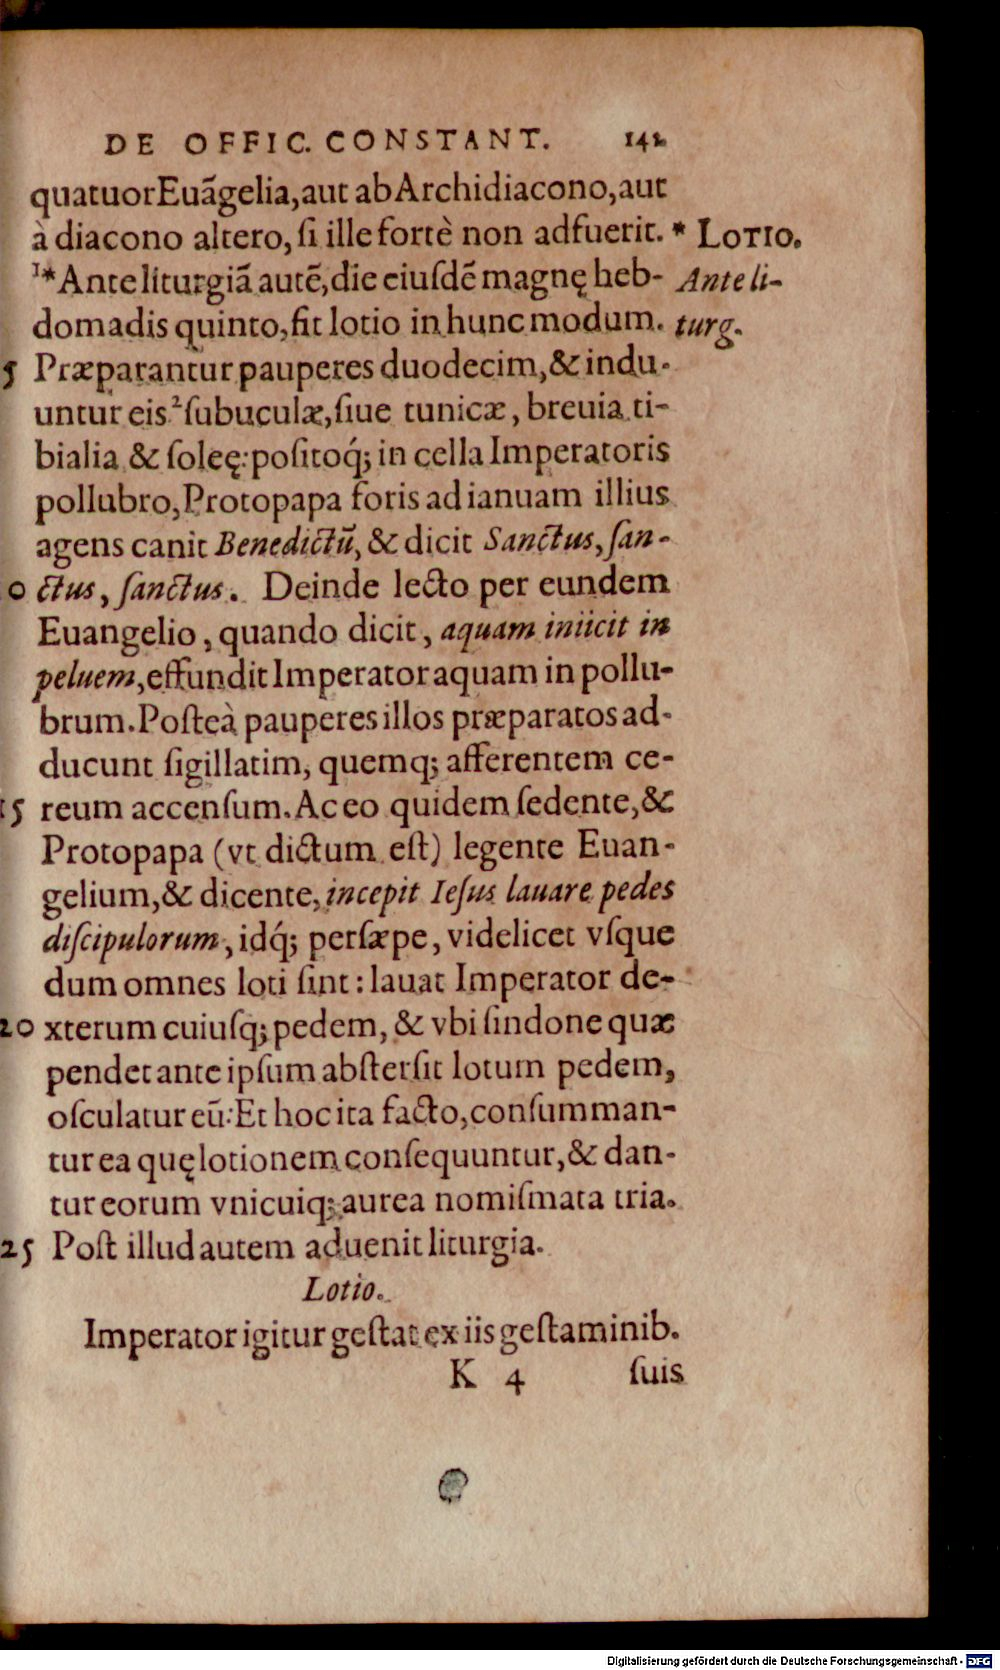 DE OFFIC. CONSTANT. 142
quatuor Euãgelia, aut ab Archidiacono, aut
à diacono altero, ſi ille fortè non adfuerit. * LOTIO.
1* Ante liturgiã autẽ, die eiuſdẽ magnę heb- Ante li-
domadis quinto, fit lotio in hunc modum. turg.
5 Præparantur pauperes duodecim, & indu-
untur eis 2 ſubuculæ, ſiue tunicæ, breuia ti-
bialia & ſoleę: poſitoq́; in cella Imperatoris
pollubro, Protopapa foris ad ianuam illius
agens canit Benedictũ, & dicit Sanctus, ſan-
0 ctus, ſanctus. Deinde lecto per eundem
Euangelio, quando dicit, aquam iniicit in
peluem, effundit Imperator aquam in pollu-
brum. Poſteà pauperes illos præparatos ad-
ducunt ſigillatim, quemq; afferentem ce-
15 reum accenſum. Ac eo quidem ſedente, &
Protopapa (vt dictum eſt) legente Euan-
gelium, & dicente, incepit Ieſus lauare pedes
diſcipulorum, idq́; perſæpe, videlicet vſque
dum omnes loti ſint: lauat Imperator de-
20 xterum cuiuſq; pedem, & vbi ſindone quæ
pendet ante ipſum abſterſit lotum pedem,
oſculatur eũ: Et hoc ita facto, conſumman-
tur ea quę lotionem conſequuntur, & dan-
tur eorum vnicuiq; aurea nomiſmata tria.
25 Poſt illud autem aduenit liturgia.
Lotio.
Imperator igitur geſtat ex iis geſtaminib.
K 4 ſuis
Digitalisierung gefördert durch die Deutsche Forschungsgemeinschaft - DFG